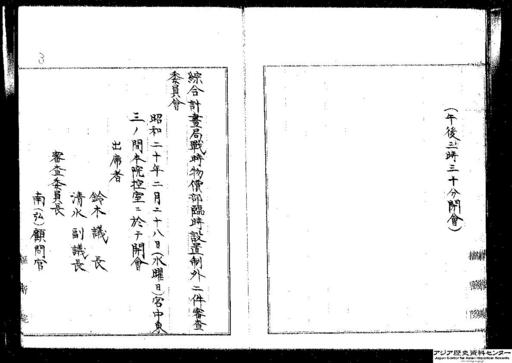 (午後三時三十分開會)
綜合計畫局戰時物價部臨時設置制外二件審査
委員會
昭和二十年二月二十八日(水曜日)宮中東
三ノ間本院控室ニ於テ開會
出席者
鈴木議長
清水副議長
審査委員長
南(弘)顧問官
3
アジア歴史資料センター
Japan Center for Asian Historical Records